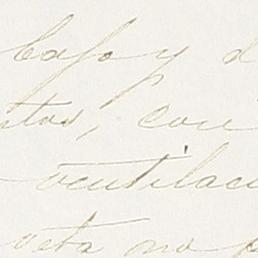 bajo y d
tos, con
ventilaci
veta no p